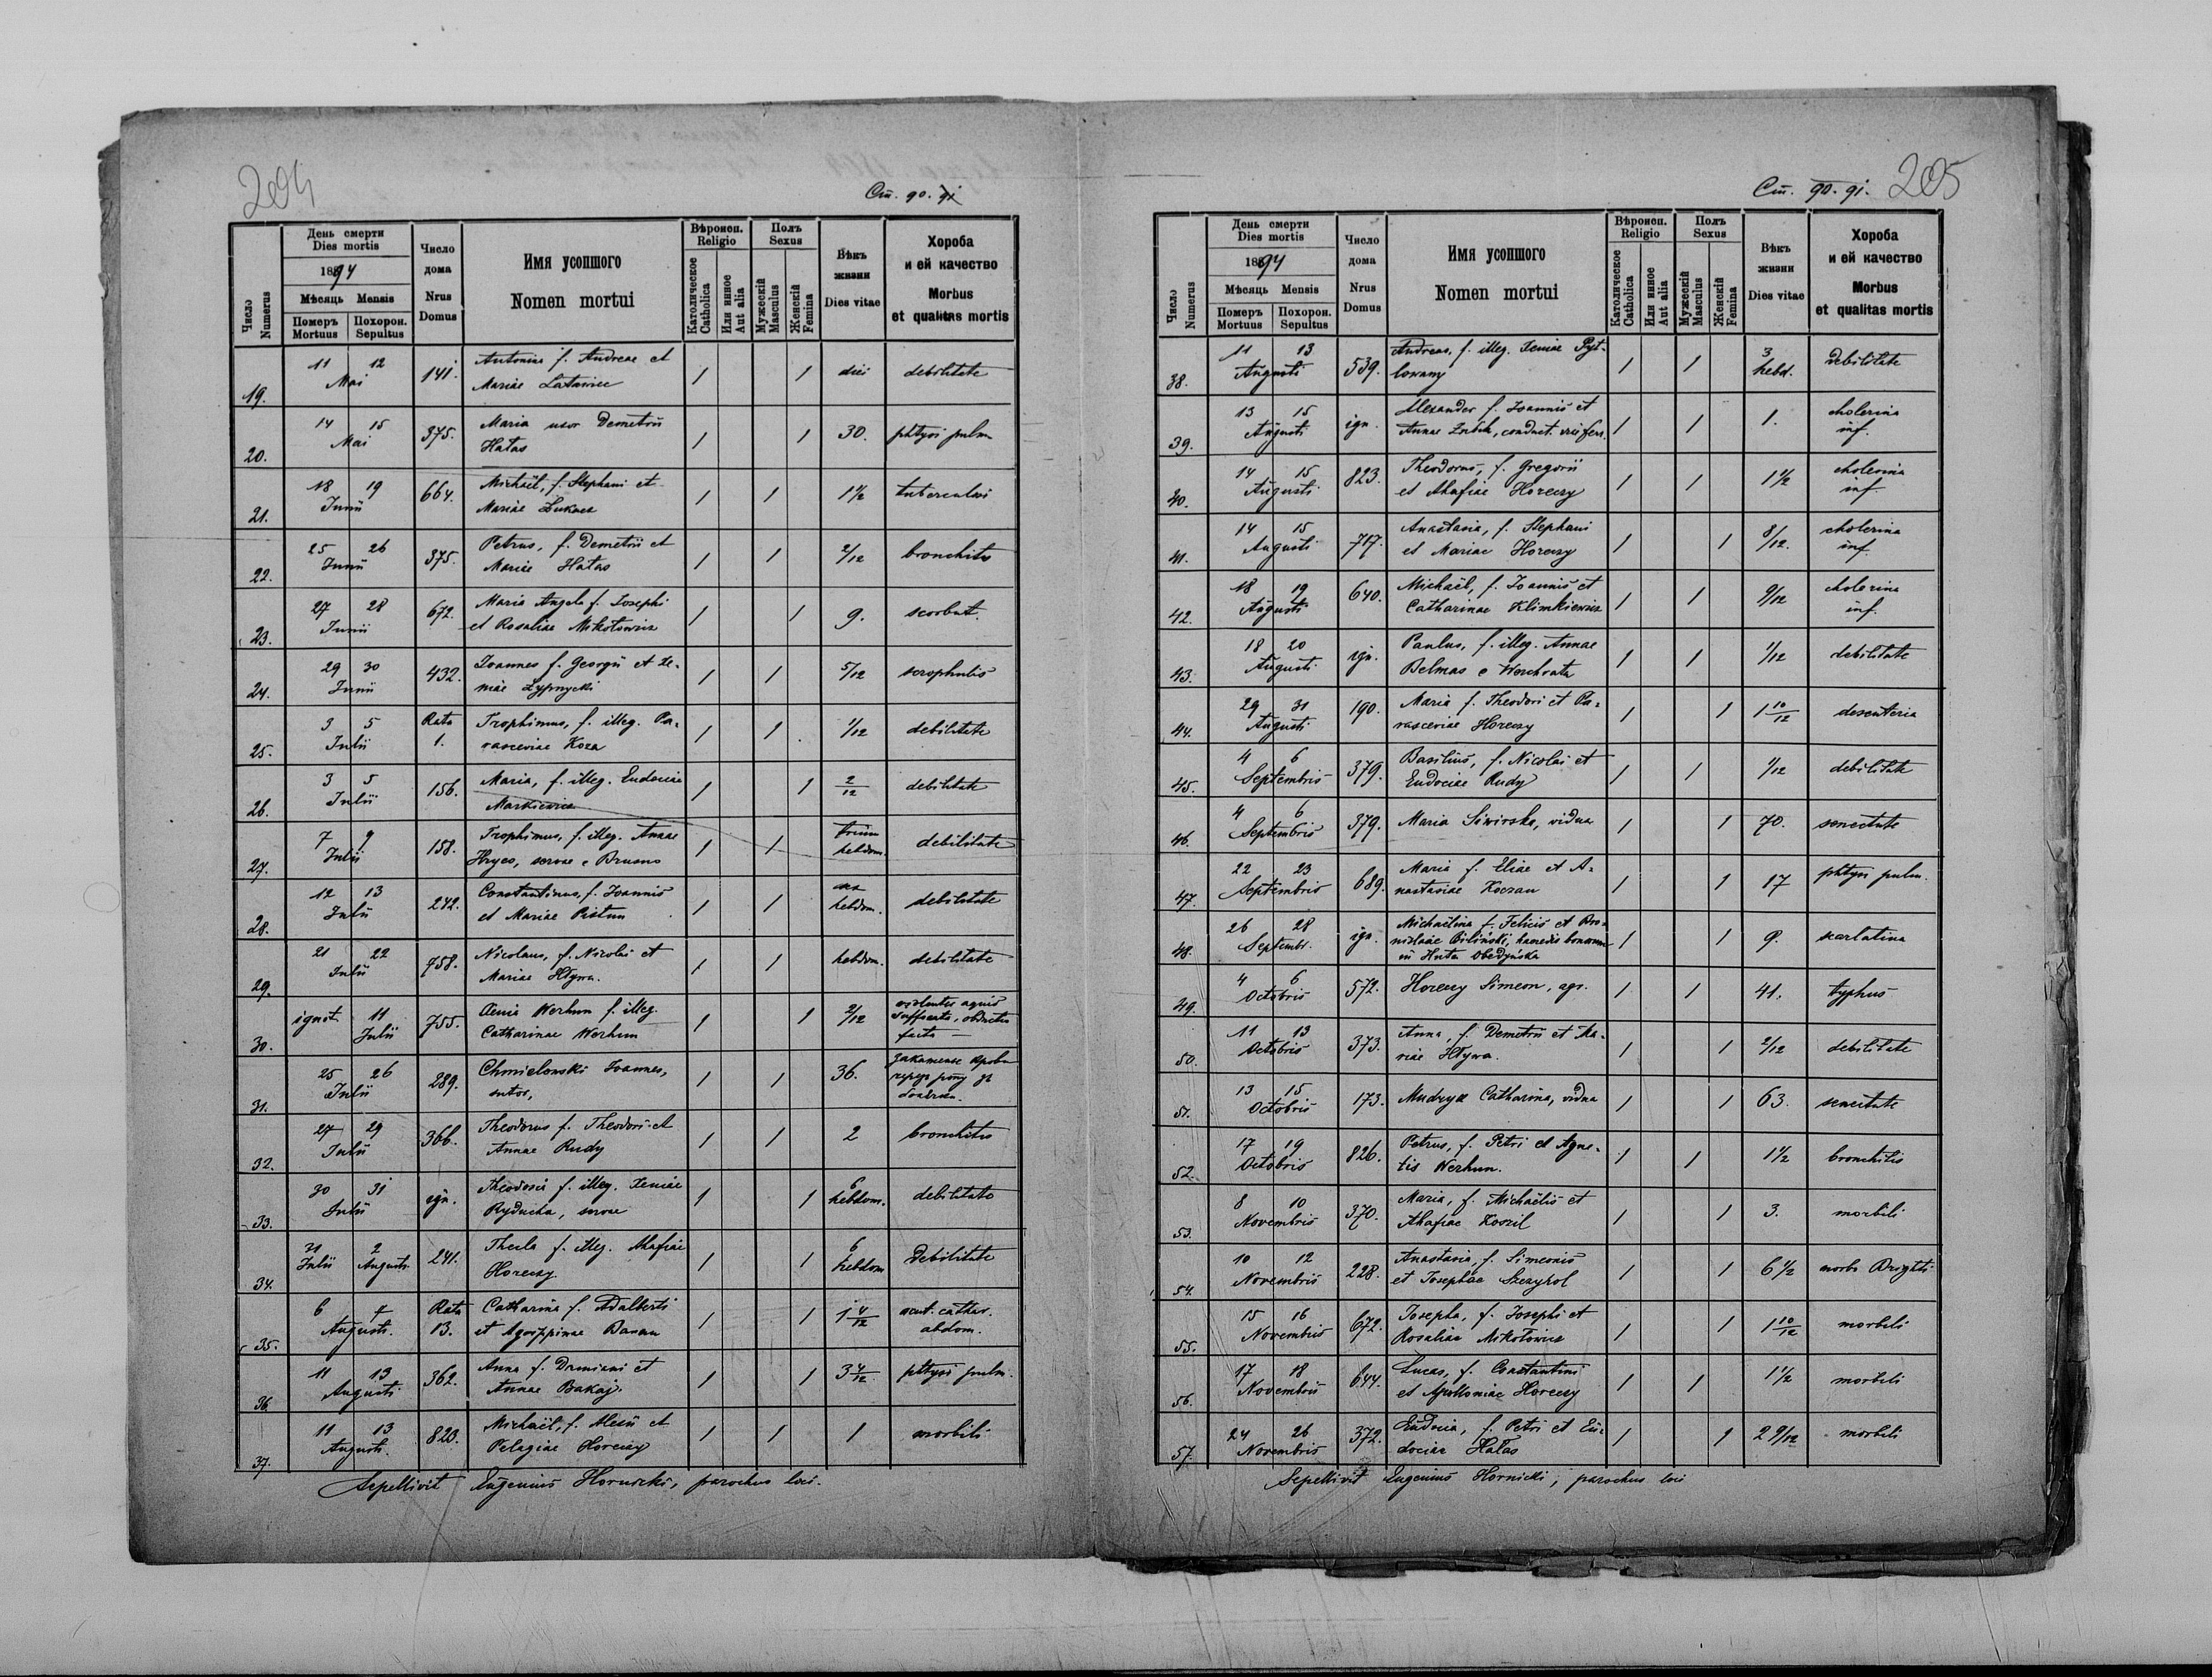 204
Ст. 90. 91
Число Numerus
День смерти Dies mortis
1894
Мѣсяць Mensis
Померъ Mortuus
Похорон. Sepultus
Число дома Nrus Domus
Имя усопшого Nomen mortui
Вѣроисп. Religio
Католическое Catholica
Или инное Aut alia
Полъ Sexus
Мужескій Masculus
Женскій Femina
Вѣкъ жизни Dies vitae
Хороба и ей качество Morbus et qualitas mortis
19. 11 12 Mai 141. Antonina f. Andreae et Mariae Latawiec 1 1 diei debilitate
20. 14 15 Mai 375. Maria uxor Demetrii Hałas 1 1 30. phtysi pulm
21. 18 19 Junii 664. Michaël, f. Stephani et Mariae Łukacz 1 1 1 1/2 tuberculosi
22. 25 26 Junii 375. Petrus, f. Demetrii et Mariae Hałas 1 1 2/12 bronchitis
23. 27 28 Junii 672. Maria Angela f. Josephi et Rosaliae Mikołowicz 1 1 9. scorbut.
24. 29 30 Junii 432. Joannes f. Georgii et Xeniae Łypnycki 1 1 5/12 scrophulis
25. 3 5 Julii Rata 1. Trophimus, f. illeg. Parasceviae Koza 1 1 1/12 debilitate
26. 3 5 Julii 156. Maria, f. illeg. Eudociae Markiewicz 1 1 2/12 debilitate
27. 7 9 Julii 158. Trophimus, f. illeg. Annae Hryco, servae e Brusno 1 1 trium hebdom. debilitate
28. 12 13 Julii 242. Constantinus, f. Joannis et Mariae Pistun 1 1 hebdom. debilitate
29. 21 22 Julii 758. Nicolaus, f. Nicolai et Mariae Hływa. 1 1 hebdom. debilitate
30. ignot. 11 Julii 755. Xenia Werhun f. illeg. Catharinae Werhun 1 1 2/12 aquis suffocata, obductio facta
31. 25 26 Julii 289. Chmielowski Joannes, sutor, 1 1 36.
32. 27 29 Julii 366. Theodorus f. Theodori et Annae Rudy 1 1 2 bronchitis
33. 30 31 Julii ign. Theodosia f. illeg. Xeniae Ryducha, servae 1 1 6 hebdom. debilitate
34. 31 Julii 2 Augusti 241. Thecla f. illeg. Ahafiae Horeczy 1 1 6 hebdom debilitate
35. 6 7 Augusti. Rata 13. Catharina f. Adalberti et Agrippinae Banan 1 1 1 4/12 acut. cathar. abdom.
36. 11 13 Augusti 362. Anna f. Damiani et Annae Bakaj 1 1 3 4/12 phtysi pulm.
37. 11 13 Augusti. 823. Michaël, f. Alexii et Pelagiae Horeczy 1 1 1 morbili
Sepellivit Eugenius Hornicki, parochus loci.
205
Ст. 90. 91.
Число Numerus
День смерти Dies mortis
1894
Мѣсяць Mensis
Померъ Mortuus
Похорон. Sepultus
Число дома Nrus Domus
Имя усопшого Nomen mortui
Вѣроисп. Religio
Католическое Catholica
Или инное Aut alia
Полъ Sexus
Мужескій Masculus
Женскій Femina
Вѣкъ жизни Dies vitae
Хороба и ей качество Morbus et qualitas mortis
38. 11 13 Augusti 539. Andreas, f. illeg. Xeniae Pytlowany 1 1 3 hebd. debilitate
39. 13 15 Augusti ign. Alexander f. Joannis et Annae Zubik, conduct. viae ferr. 1 1 1. cholerina inf.
40. 14 15 Augusti 823. Theodorus, f. Gregorii et Ahafiae Horeczy 1 1 1 1/2 cholerina inf.
41. 14 15 Augusti 777. Anastasia, f. Stephani et Mariae Horeczy 1 1 8/12. cholerina inf.
42. 18 19 Augusti 640. Michaël, f. Joannis et Catharinae Klimkiewicz 1 1 9/12 cholerina inf.
43. 18 20 Augusti ign. Paulus, f. illeg. Annae Belmas e Werchrata 1 1 1/12 debilitate
44. 29 31 Augusti 190. Maria f. Theodori et Parasceviae Horeczy 1 1 1 10/12 desenteria
45. 4 6 Septembris 379. Basilius, f. Nicolai et Eudociae Rudy 1 1 1/12 debilitate
46. 4 6 Septembris 379. Maria Siwirska, vidua 1 1 70. senectute
47. 22 23 Septembris 689. Maria f. Eliae et Anastasiae Koczan 1 1 17 phtysi pulm.
48. 26 28 Septembr. ign. Michaëlina f. Felicis et Bronislaiae Biliński, haeredis bonorum in Huta obedyńska 1 1 9. scarlatina
49. 4 6 Octobris 572. Horeczy Simeon, agr. 1 1 41. typhus
50. 11 13 Octobris 373. Anna, f. Demetrii et Mariae Hływa. 1 1 2/12 debilitate
51. 13 15 Octobris 173. Mudryk Catharina, vidua 1 1 63. senectute
52. 17 19 Octobris 826. Petrus, f. Petri et Agnetis Werhun. 1 1 1 1/2 bronchitis
53. 8 10 Novembris 370. Maria, f. Michaëlis et Ahafiae Koszil 1 1 3. morbili
54. 10 12 Novembris 228. Anastasia, f. Simeonis et Josephae Szczyrol 1 1 6 1/2 morbo Brightii
55. 15 16 Novembris 672. Josepha, f. Josephi et Rosaliae Mikołowicz 1 1 1 10/12 morbili
56. 17 18 Novembris 644. Lucas, f. Constantini et Apolloniae Horeczy 1 1 1 1/2 morbili
57. 24 26 Novembris 372. Eudocia, f. Petri et Eudociae Hałas 1 1 2 9/12 morbili
Sepellivit Eugenius Hornicki, parochus loci